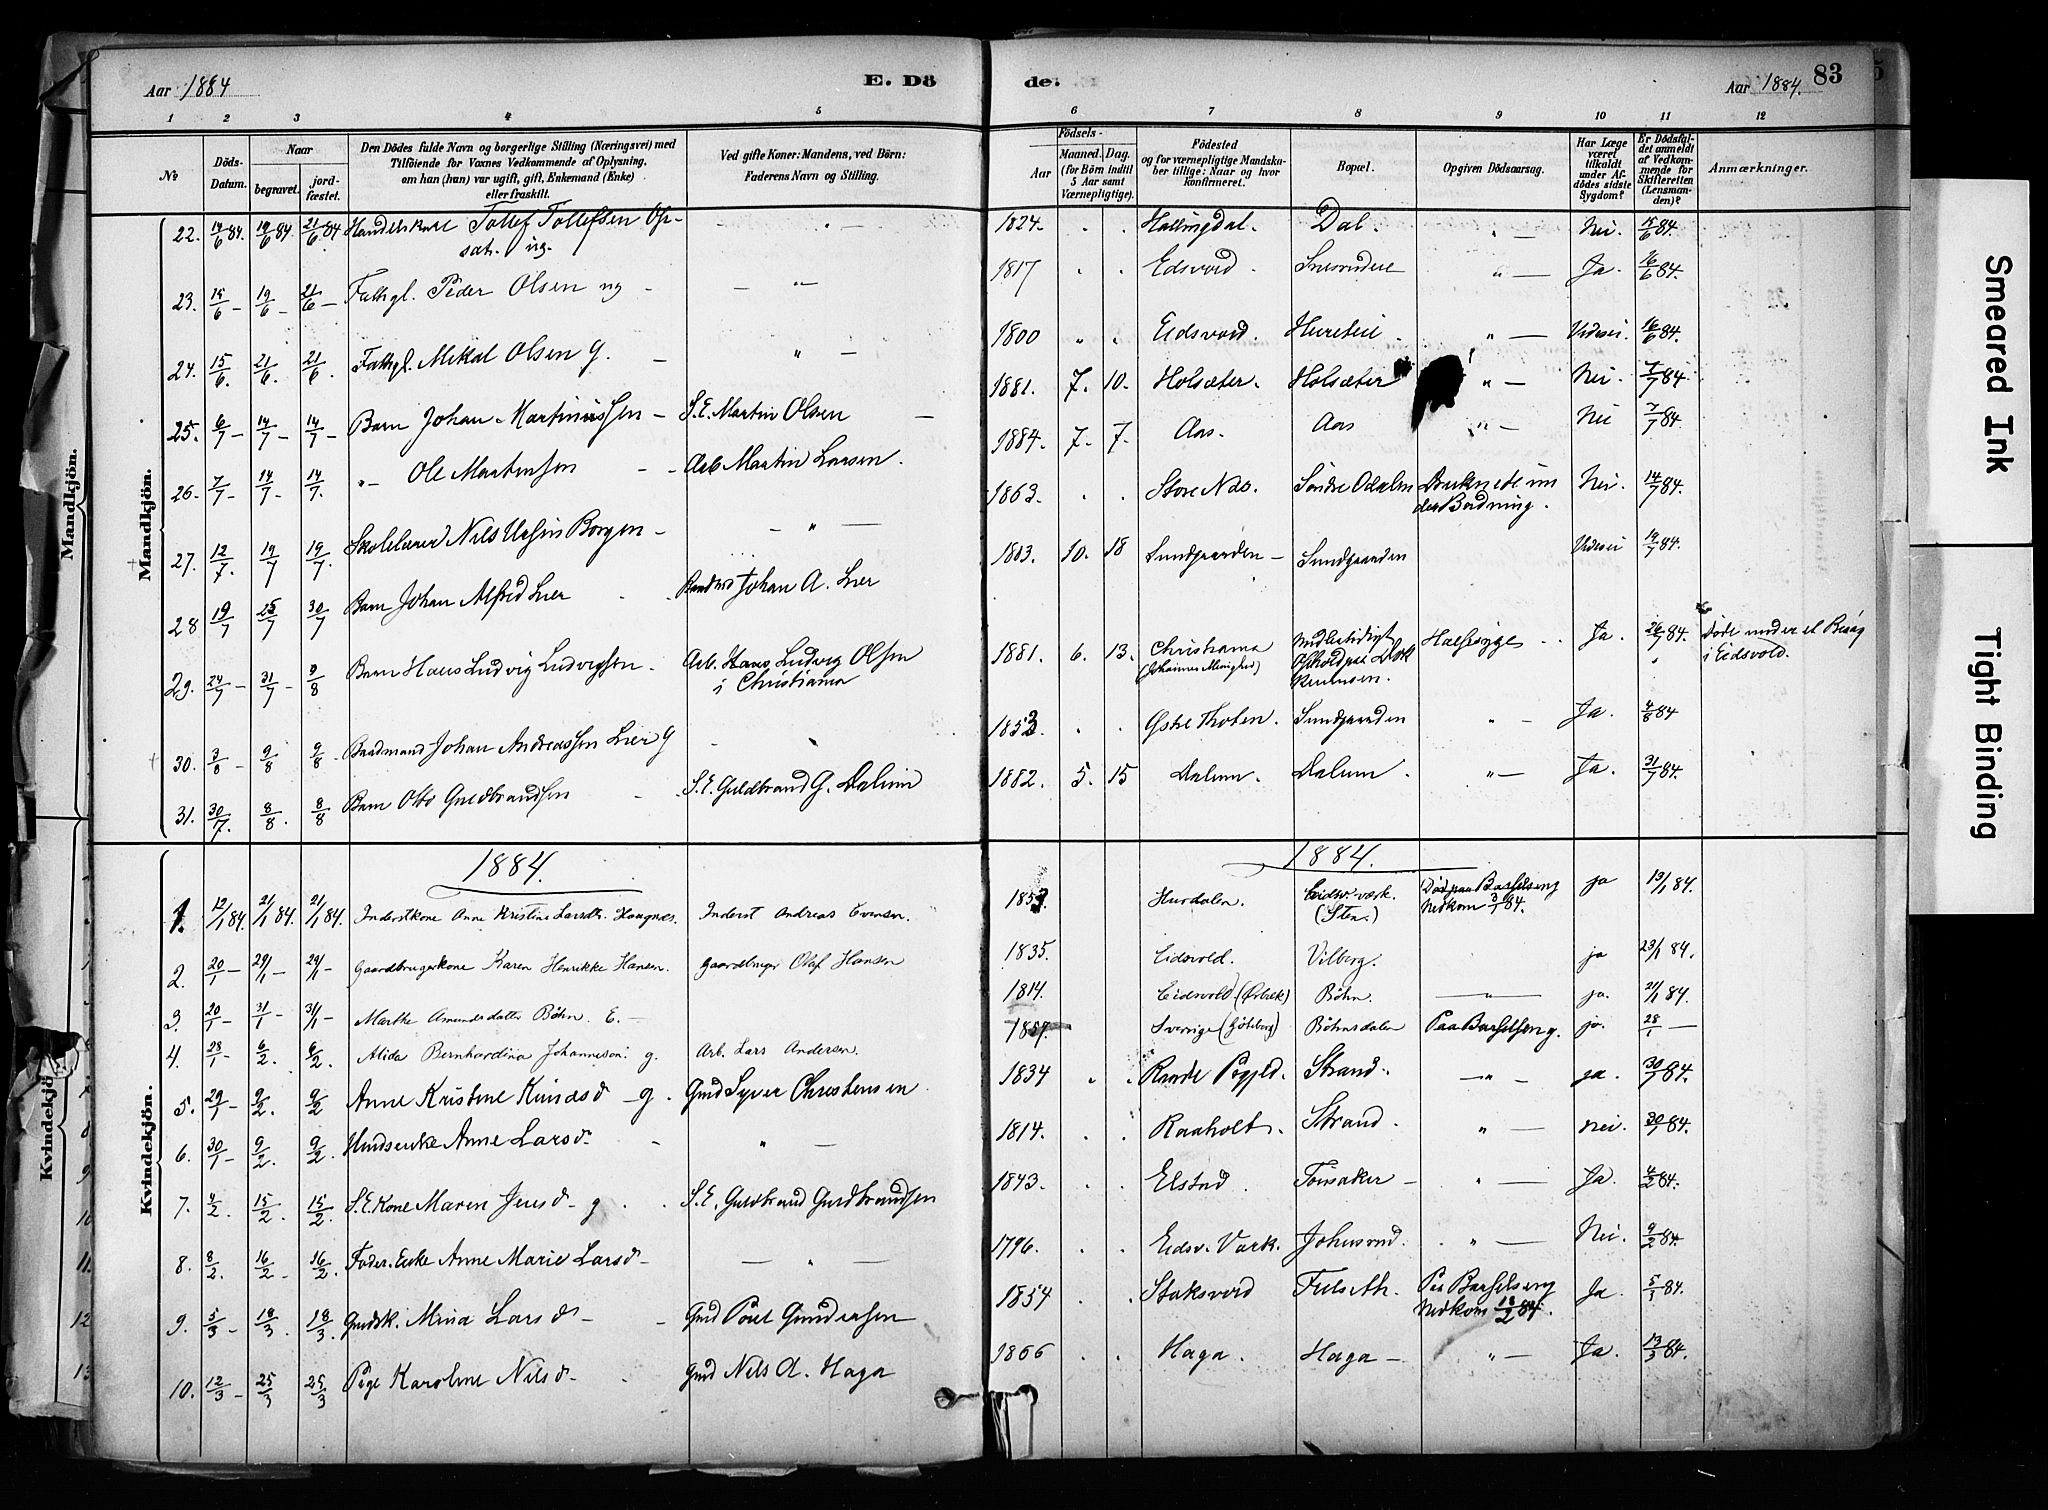 Aar 1884 E. Dö
de. Aar 1884. 83
1 2 3 4 5
6 7 8 9 10 11 12
No
Döds-
Datum.
Naar
begravet.
jord-
fæstet.
Den Dödes fulde Navn og borgerlige Stilling (Næringsvei) med
Tilföiende for Voxnes Vedkommende af Oplysning,
om han (hun) var ugift, gift, Enkemand (Enke)
eller fraskilt.
Ved gifte Koner: Mandens, ved Börn:
Faderens Navn og Stilling.
Födsels-
Aar
Maaned. Dag.
(for Börn indtil
5 Aar samt
Værnepligtige).
Födested
og for værnepligtige Mandska-
ber tillige: Naar og hvor
konfirmeret.
Bopæl.
Opgiven Dödsaarsag.
Har Læge
været
tilkaldt
under Af-
dödes sidste
Sygdom?
Er Dödsfal-
det anmeldt
af Vedkom-
mende for
Skifteretten
(Lensman-
den)?
Anmærkninger.
Mandkjön.
22. 14/6 84. 19/6 84 21/6 84 Tollef Tollefsen 1824. Hallingdal. Dal. " — Nei. 15/6 84.
23. 15/6 – 19/6 – 21/6 – Fathgl. Peder Olsen ug – — " — 1817 Edsvord. " — Ja. 16/6 84.
24. 15/6. 21/6. 21/6. Fathgl. Mikal Olsen G. — " — 1800 Eidsvord. " — Vides ei 16/6 84.
25. 6/7 – 14/7 – 14/7 – Barn Johan Martiniussen – S.E. Martin Olsen — 1881. 7. 10. Holsæter. Holsæter " — Nei. 7/7 84.
26. 7/7 – 14/7 – 14/7. " Ole Martinsen – Arb Martin Larsen. 1884. 7. 7. Aas. Aas " — Nei 7/7 84.
27. 12/7. 19/7 19/7. Skolelærer Nils Ursin Borgen – – " — 1863. Store Næs. Söndre Odalen Druknede un
der Badning. Nei. 14/7 84.
28 19/7 25/7 30/7 Barn Johan Alfred Lier Johan A. Lier 1883. 10. 18 Sundgaarden – Sundgaarden Vides ei 19/7 84.
29. 24/7 – 31/7 – 9/8 Barn Hans Ludvig Ludvigsen. Arb. Hans Ludvig Olsen
i Christiania 1881. 6. 13. Christiania
Midlertidigt
Halssyge Ja. 26/7 84. Döde under et Besög
i Eidsvold.
30. 3/8 – 9/8 9/8 Baadmand Johan Andreassen Lier G " 1853. Østre Thoten. Sundgaarden " – Ja. 4/8 84
31. 30/7. 8/8. 8/8 Barn Otto Guldbrandsen S.E. Guldbrand G. Dalum 1882. 5. 15 Dalum. Dalum. " — Ja. 31/7 84.
Kvindekjön.
1884. 1884.
1. 12/1 84. 21/1 84. 21/1 84. Inderstkone Anne Kristine Larsdtr. Haagnæs. Inderst Andreas Evensen. 1853. Hurdalen. Eidsv. værk.
(Sten.) Död paa Barselseng
Nedkom 3/1 84. ja 13/1 84.
2. 20/1 – 29/1 – 29/1 – Gaardbrugerkone Karen Henrikke Hansen. Gaardbruger Olaf Hansen 1835. Eidsvold. Vilberg. ja 23/1 84.
3. 20/1 – 31/1 – 31/1 – Marthe Amundsdatter Bøhn. E. – 1814. Eidsvold (Ørbæk) Bøhn. — " — ja. 21/1 84.
4. 28/1 – 6/2. 6/2. Alida Bernhardina Johannesen. g. Arb. Lars Andersen. 1857. Sverrige (Göteborg) Bøhnsdalen Paa Barselseng. ja. 28/1 —
5. 29/1 – 9/2. 9/2 Anne Kristine Knudsd – g. Gmd Syver Christensen 1834 Strand. — " – ja. 30/1 84.
6. 30/1 – 9/2. 9/2. Anne Larsd. " — 1814. Raaholt. Strand. " — nei. 30/1 84.
7. 4/2. 15/2. 15/2. S.E. Kone Maren Jensd – g S.E. Guldbrand Guldbrandsen 1843. Elstad. Tönsaker – " — Ja. 4/2 84.
8. 8/2. 16/2 – 16/2. Foder. Enke Anne Marie Larsd – — " — 1796. Eidsv. Værk. Johnsrud. " — Nei. 9/2 84.
9. 5/3 – 18/3. 18/3. Gmdsk. Mina Larsd – Gmd Poul Gundersen 1854 Staksvord Paa Barselseng
Nedkom 18/2 84. Ja. 5/3 84.
10. 12/3 – 25/3 25/3 Pige Karoline Nilsd – Gmd Nils A. Haga 1866 Haga. Haga – " — Ja. 13/3 84.
Mandkjön.
Kvindekjö
Smeared Ink
Tight Binding